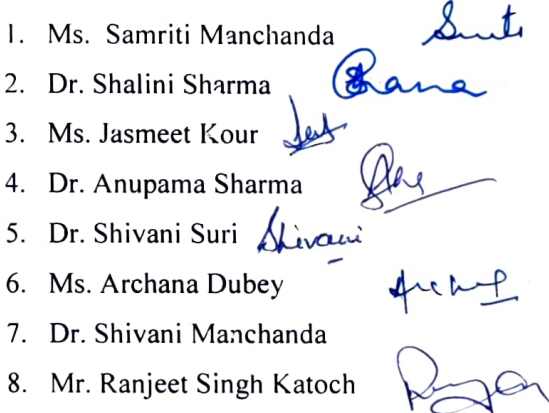 1. Ms. Samriti Manchanda
2. Dr. Shalini Sharma
3. Ms. Jasmeet Kour
4. Dr. Anupama Sharma
5. Dr. Shivani Suri Shivani
6. Ms. Archana Dubey
7. Dr. Shivani Manchanda
8. Mr. Ranjeet Singh Katoch